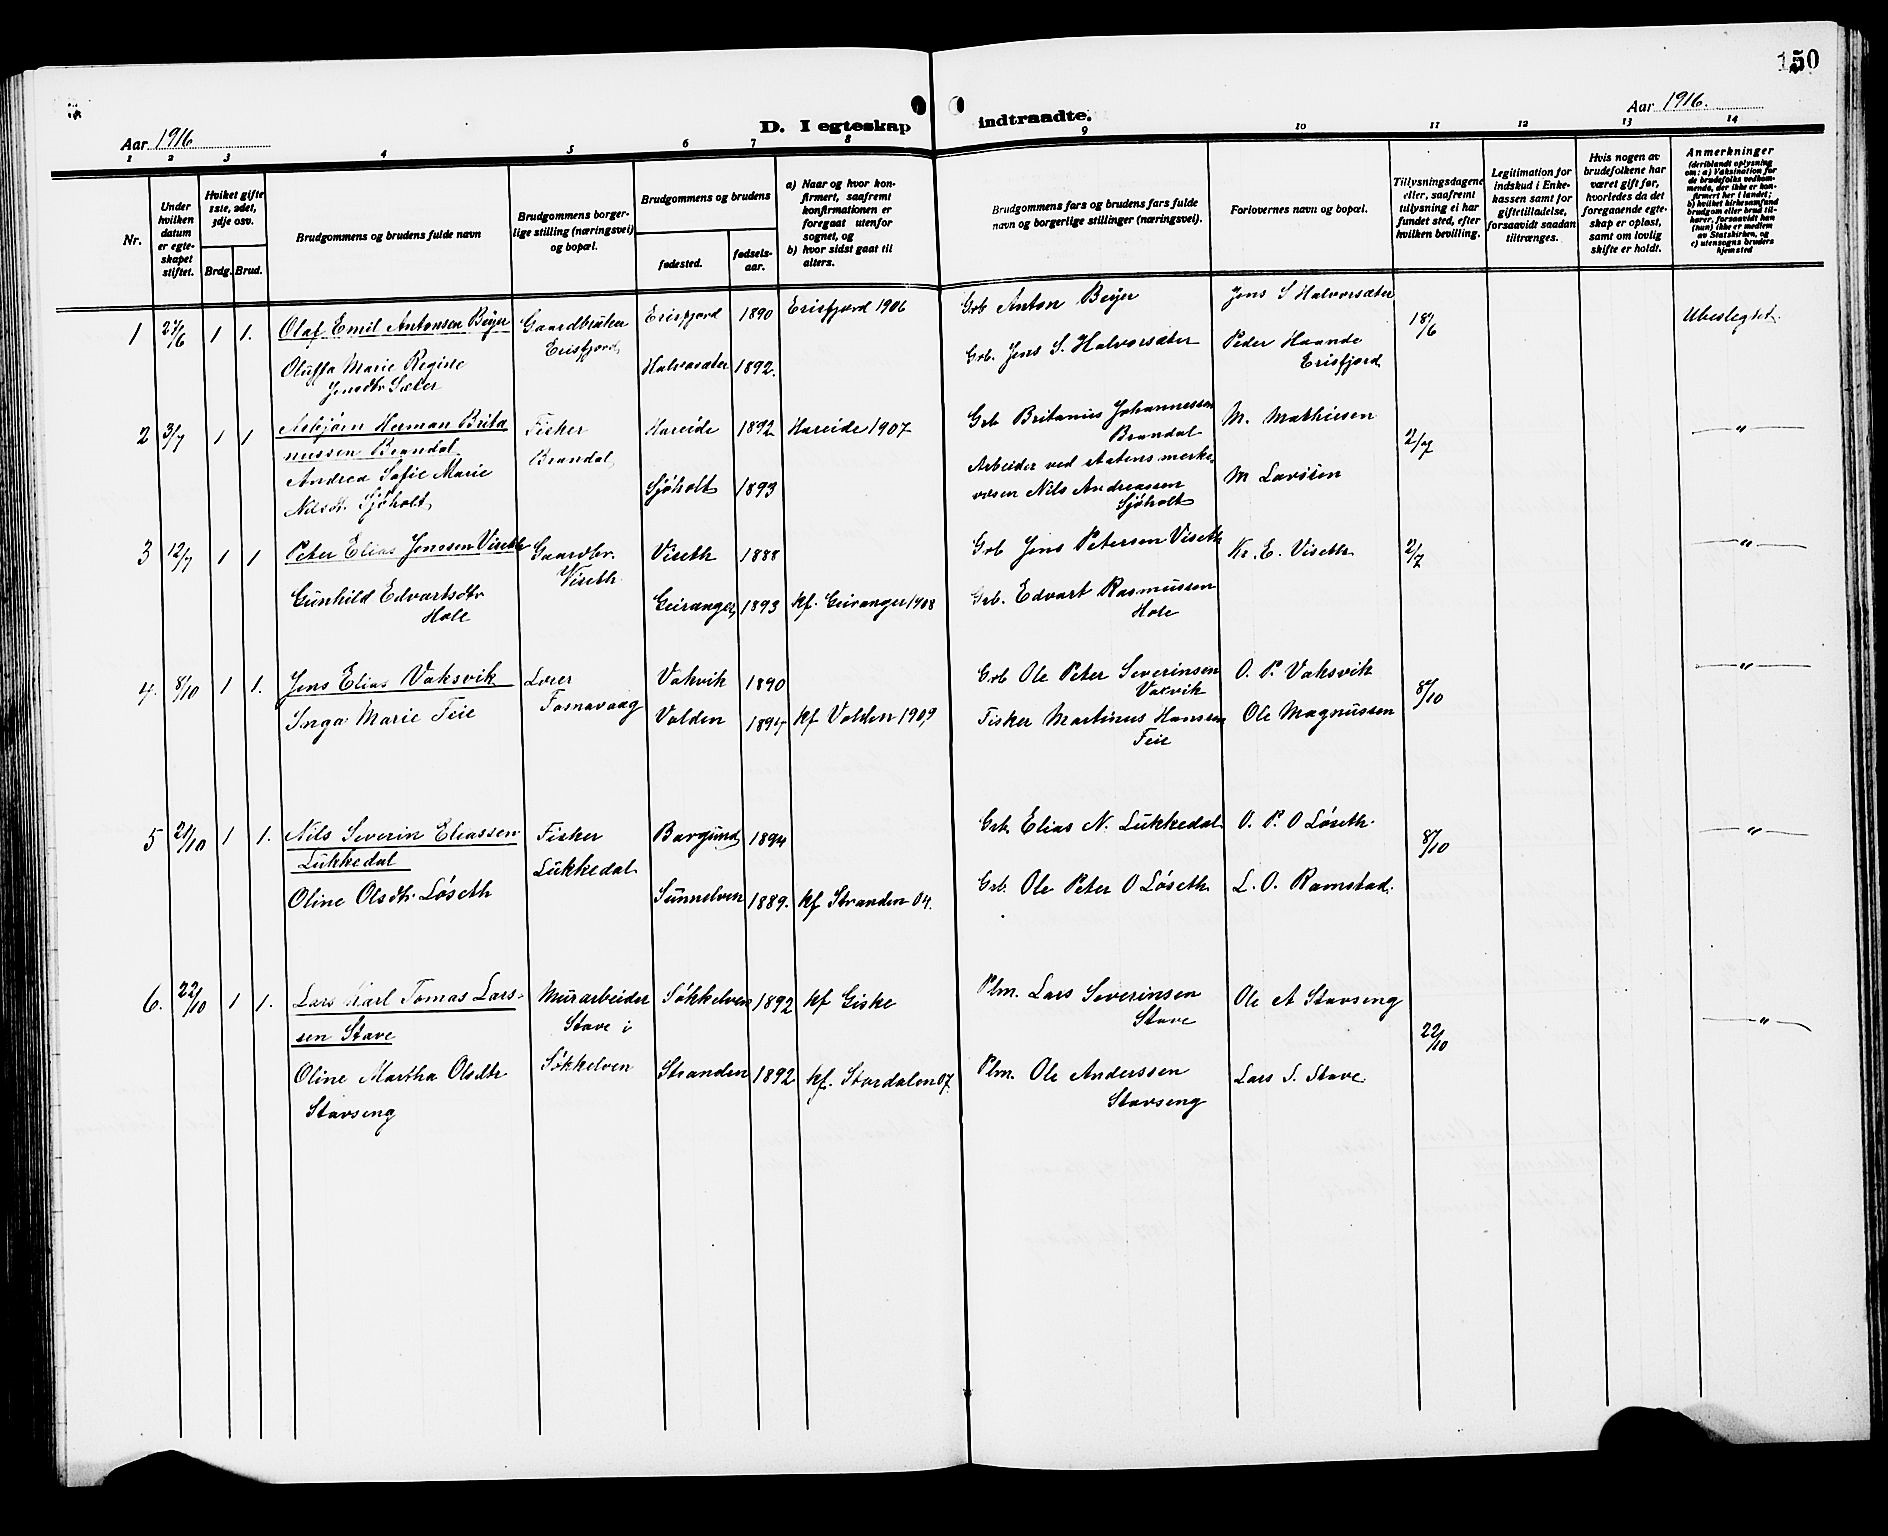 150
Aar 1916.
D. I egteskap indtraadte.
Aar 1916.
1 2 3 4 5 6 7 8 9 10 11 12 13 14
Nr.
Under hvilken datum er egteskapet stiftet.
Hvilket gifte 1ste, 2det, 3dje osv.
Brdg. Brud.
Brudgommens og brudens fulde navn
Brudgommens borgerlige stilling (næringsvei) og bopæl.
Brudgommens og brudens
fødested.
fødselsaar.
a) Naar og hvor konfirmert, saafremt konfirmationen er foregaat utenfor sognet, og
b) hvor sidst gaat til alters.
Brudgommens fars og brudens fars fulde navn og borgerlige stillinger (næringsvei).
Forlovernes navn og bopæl.
Tillysningsdagene eller, saafremt tillysning ei har fundet sted, efter hvilken bevilling.
Legitimation for indskud i Enkekassen samt for giftetilladelse, forsaavidt saadan tiltrænges.
Hvis nogen av brudefolkene har været gift før, hvorledes da det foregaaende egteskap er opløst, samt om lovlig skifte er holdt.
Anmerkninger
(deriblandt oplysning om: a) Vaksination for de brudefolks vedkommende, der ikke er konfirmert her i landet; b) hvilket kirkesamfund brudgom eller brud tilhører, forsaavidt han (hun) ikke er medlem av Statskirken, og c) utensogns bruders hjemsted
1 1 1. Olaf Emil Antonsen Beyer Gaardbruker Erisfjord 1890 Erisfjord 1906 Grb Anton Beyer Jens S Halvorsæter 18/6 Ubeslegtet.
Erisfjord
Oluffa Marie Regine Halvorsæter 1892. Grb. Jens S. Halvorsæter Peder Haande
Jensdtr Sæter Erisfjord
2 3/7 1 1 Asbjørn Herman Brita Fisker Hareide 1892 Hareide 1907 Grb Britanius Johannessen M. Mathiesen 2/7 "
nussen Brandal Brandal Brandal
Andrea Sofie Marie Sjøholt 1893 Arbeider ved statens merke M Larssen
Nilsdt. Sjøholt væsen Nils Andreassen
Sjøholt
3 12/7 1 1 Peter Elias Jenssen Viseth Gaardbr. Viseth 1888 Grb Jens Petersen Viseth Kr. E. Viseth 2/7 "
Viseth
Gunhild Edvartsdtr Geiranger 1893 Kf. Geiranger 1908 Grb. Edvart Rasmussen
Hole Hole
4. 8/10 1 1. Jens Elias Vaksvik Vakvik 1890 Grb Ole Peter Severinsen O. P. Vaksvik 8/10 "
Fosnavaag Vaksvik
Inga Marie Feie Volden 1894 Kf Volden 1909 Fisker Martinus Hansen Ole Magnussen
Feie
5 21/10 1 1. Nils Severin Eliassen Fisker Borgund 1894 Grb. Elias N. Lukkedal O. P. O Løseth 8/10 "
Lukkedal Lukkedal
Oline Olsdtr Løseth Sunnelven 1889. Kf Stranden 04. Grb. Ole Peter O Løseth L. O. Ramstad.
6. 22/10 1 1. Lars Karl Tomas Lars- Murarbeider Søkkelven 1892 Kf Giske Plm. Lars Severinsen Ole A Stavseng 22/10 "
sen Stave Stave i Stave
Oline Martha Olsdtr Søkkelven Stranden 1892 Kf. Stordalen 07. Plm. Ole Anderssen Lars S. Stave
Stavseng Stavseng